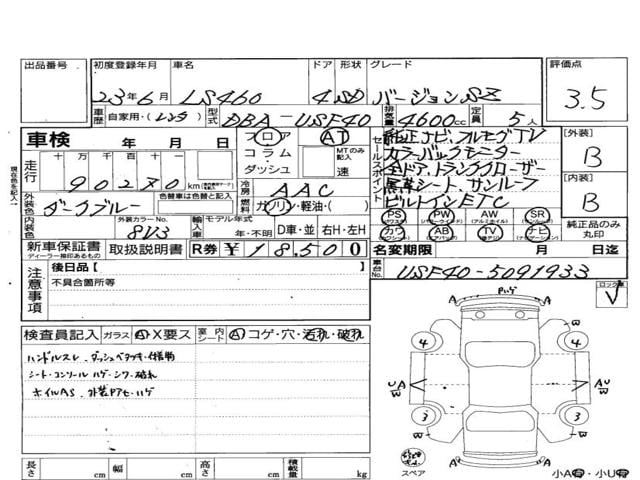 出品番号 初度登録年月 車名 ドア 形状 グレード 評価点
23年6月 LS460 4 SD バージョンSZ 3.5
車歴 自家用・(レンタ) 型式 DBA-USF40 排気量 4600cc 定員 5人
車検 年 月 日 フロア AT 純正ナビ.フルセグTV [外装]
コラム MTのみ記入 カラーバックモニター B
走行 十万 万 千 百 十 ダッシュ 速 全ドア.トランククローザー
90230 km 冷房 AAC 黒革シート.サンルーフ [内装]
色替車は色替と記入 燃料 ガソリン・軽油・( ) ビルトインETC B
外装色 ダークブルー PS PW AW SR
外装カラーNo. 輸入車 モデル年式 カワ AB TV ナビ 純正品のみ丸印
内装色 8V3 年・不明 D車・並 右H・左H
新車保証書 取扱説明書 R券 ¥18,500 名変期限 月 日迄
ディーラー捺印あるもの
注意事項 後日品[ ] 車台No. USF40-5091933
不具合箇所等 ロック車
検査員記入 ガラス A・X要ス 室内シート A コゲ・穴・汚れ・破れ
ハンドルスレ.ダッシュベタツキ.
シート・コンソールハゲ・シワ・破れ
ホイルAS.外装Pアセ・ハゲ
長さ cm 幅 cm 高さ cm 積載量 kg
Pハゲ
A A
W W
4 4
UA W AU W
3 3
W W
A A
スペア 小A有・小U有